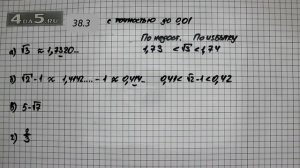 4DA5.RU
38.3 с точностью до 0,01
По недост. По избытку
а) √3 ≈ 1,7320... 1,73 < √3 < 1,74
б) √2 - 1 ≈ 1,4142.... - 1 ≈ 0,414.. 0,41 < √2 - 1 < 0,42
в) 5 - √7
г)